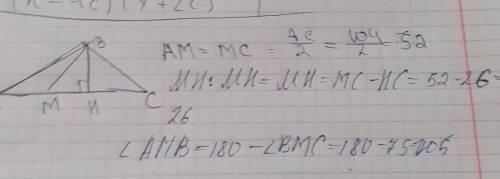 (x-4c)(x+2c)
B
AM = MC = AC/2 = 104/2 = 52
MH: MH = MH = MC - HC = 52 - 26 =
26
M H C
∠AMB = 180 - ∠BMC = 180 - 75 = 105